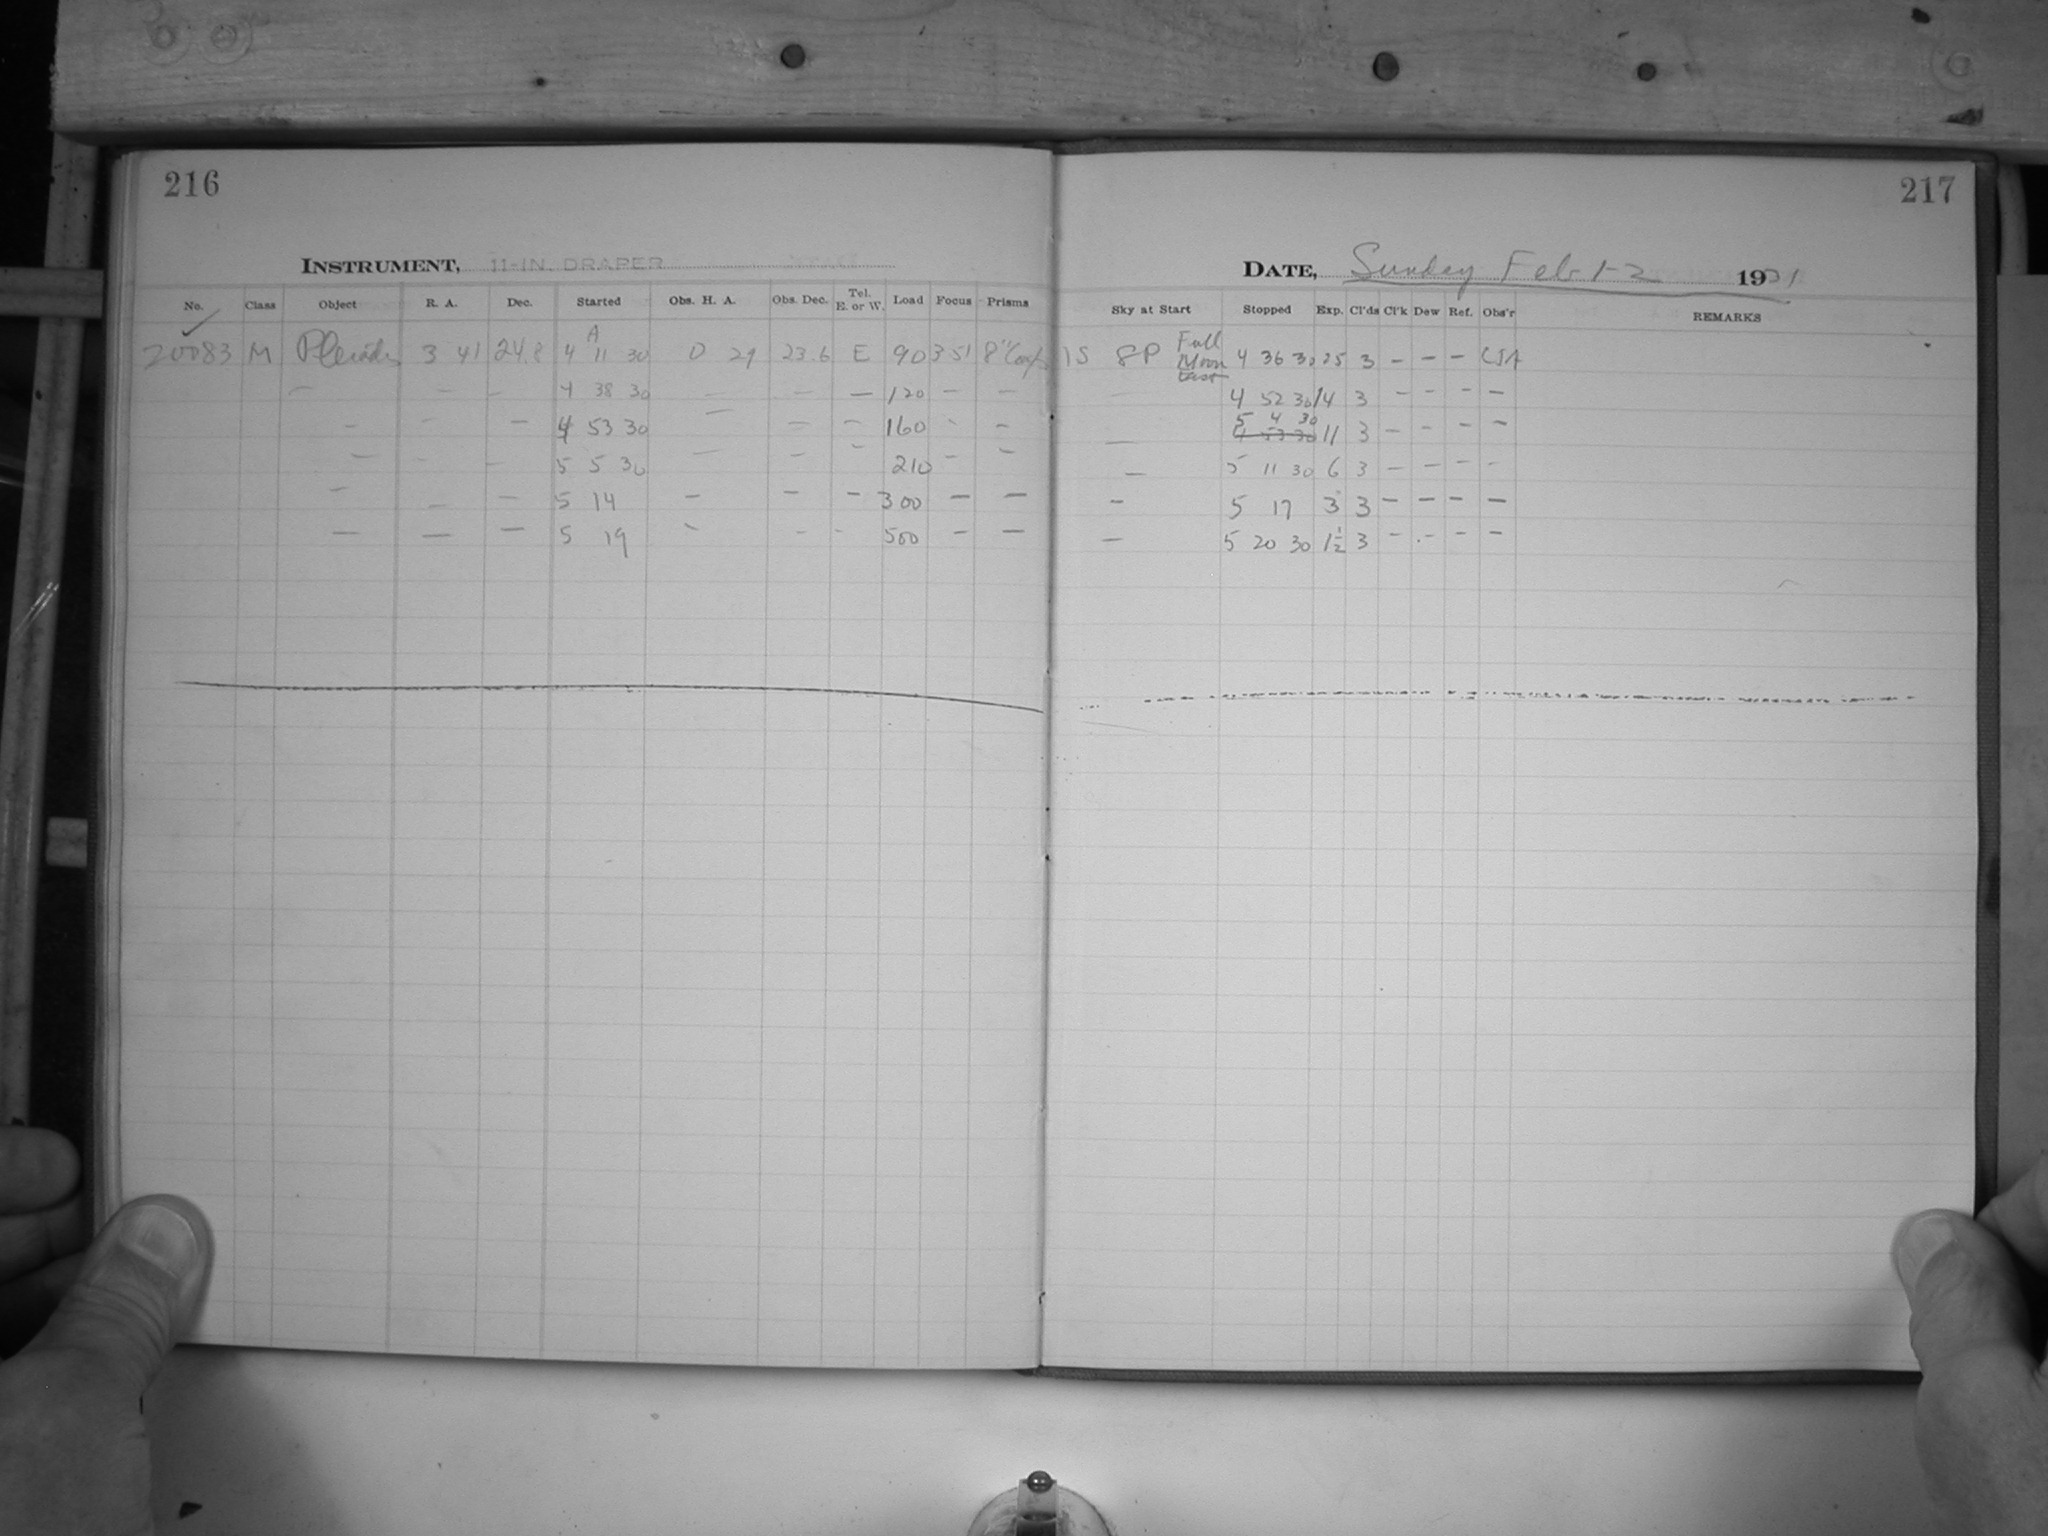 216
217
INSTRUMENT, 11-IN. DRAPER
DATE, Sunday Feb 1-2 1931
No. Class Object R. A. Dec. Started Obs. H. A. Obs. Dec. Tel. E. or W. Load Focus Prisms Sky at Start Stopped Exp. Cl'ds Cl'k Dew Ref. Obs'r REMARKS
20083 M Pleiades 3 41 24.8 A 4 11 30 0 29 23.6 E 90 351 8" 1S 8P Full Moon East 4 36 30 25 3 – – –
– – – 4 38 30 – – – 120 – – – 4 52 30 14 3 – – – –
– – – 4 53 30 – – – 160 – – – 5 4 30 11 3 – – – –
– – – 5 5 30 – – – 210 – – – 5 11 30 6 3 – – – –
– – – 5 14 – – – 300 – – – 5 17 3 3 – – – –
– – – 5 19 – – – 500 – – – 5 20 30 1½ 3 – – – –